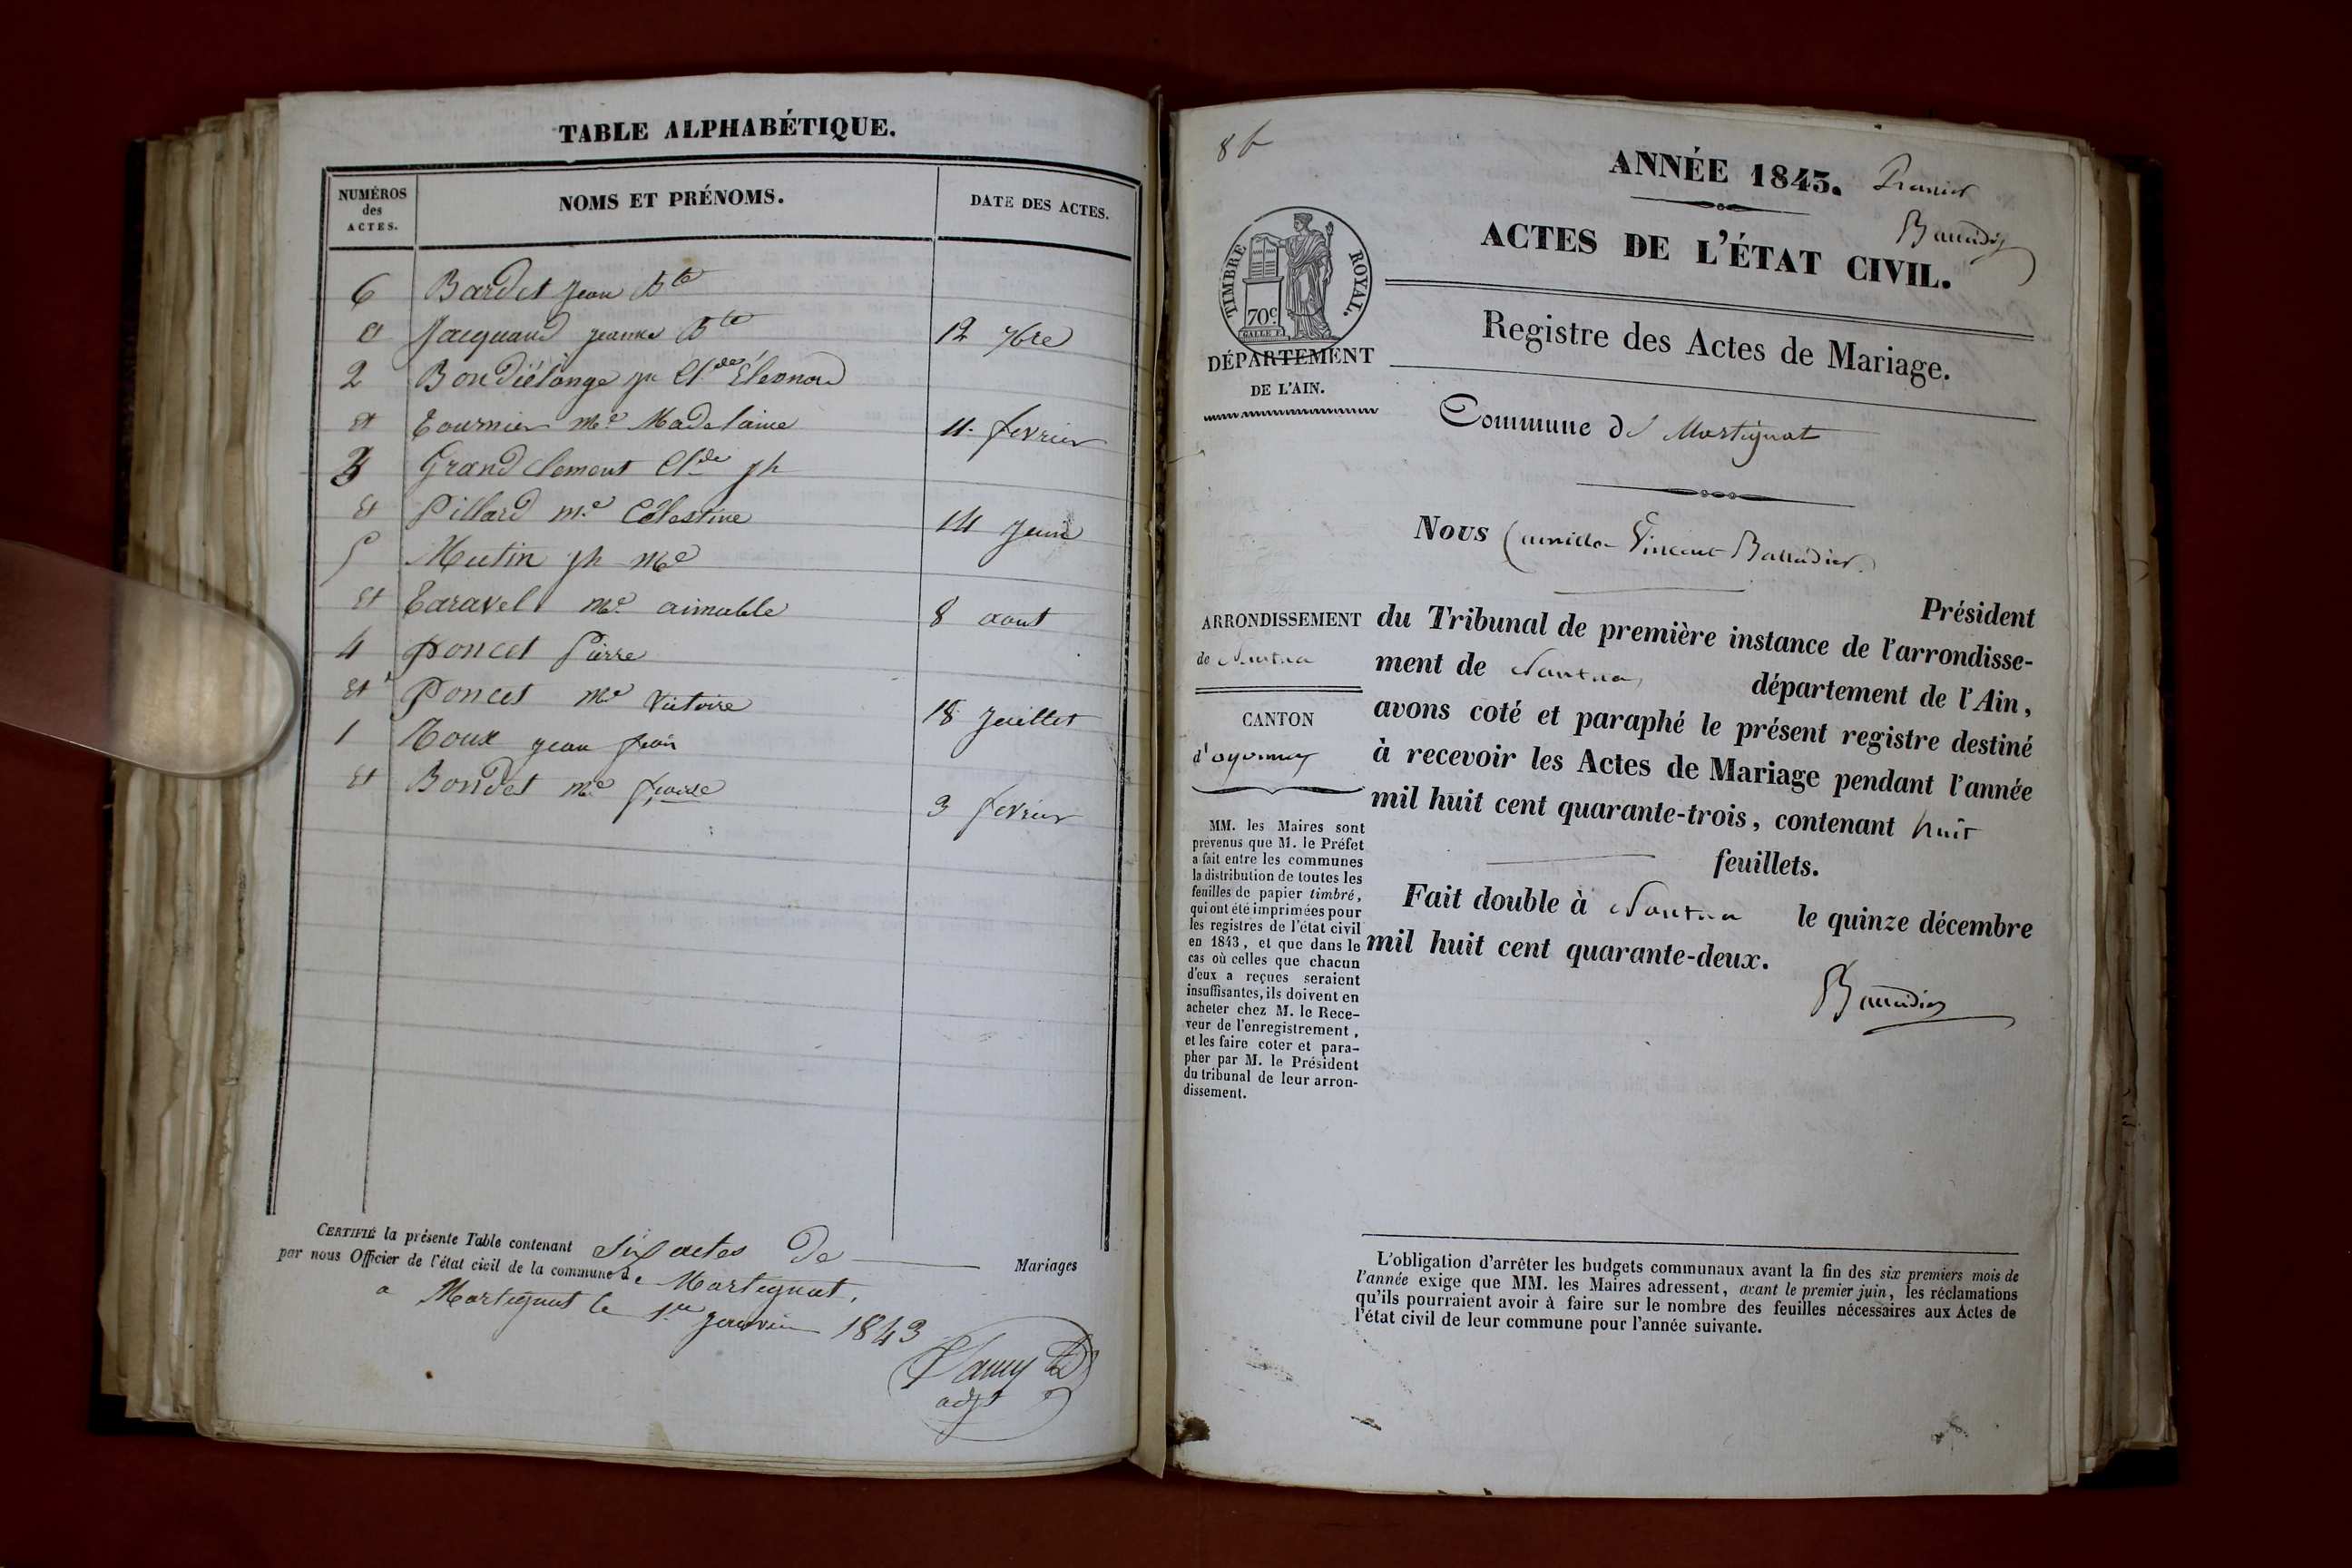 TABLE ALPHABÉTIQUE.
NUMÉROS
des
ACTES.
NOMS ET PRÉNOMS.
DATE DES ACTES.
6 Bardet Jean Bte
et Jacquand jeanne Bte 12 7bre
2 Bondiélange jh Cl.de Éleonord
et Tournier me. Madelaine 11. fevrier
3 Grandclement Cl.de jh
et Pillard me. Célestine 14 Juin
5 Mutin jh Me
et Taravel me. aimable 8 aout
4 Poncet Pierre
et Poncet me Victoire 18 Juillet
1 Roux jean
et Bondet me 3 fevrier
CERTIFIÉ la présente Table contenant Six actes de Mariages
par nous Officier de l'état civil de la commune de Martignat.
a Martignat le 1er janvier 1843
adjt
ANNÉE 1843. Premier
ACTES DE L'ÉTAT CIVIL.
TIMBRE ROYAL.
70c
DÉPARTEMENT
DE L'AIN.
Registre des Actes de Mariage.
Commune de Martignat
Nous Camille Vincent
Président
ARRONDISSEMENT
de Nantua
CANTON
d'oyonnax
du Tribunal de première instance de l'arrondisse-
ment de Nantua, département de l'Ain,
avons coté et paraphé le présent registre destiné
à recevoir les Actes de Mariage pendant l'année
mil huit cent quarante-trois, contenant huit
feuillets.
Fait double à Nantua le quinze décembre
mil huit cent quarante-deux.
MM. les Maires sont
prévenus que M. le Préfet
a fait entre les communes
la distribution de toutes les
feuilles de papier timbré,
qui ont été imprimées pour
les registres de l'état civil
en 1843, et que dans le
cas où celles que chacun
d'eux a reçues seraient
insuffisantes, ils doivent en
acheter chez M. le Rece-
veur de l'enregistrement,
et les faire coter et para-
pher par M. le Président
du tribunal de leur arron-
dissement.
L'obligation d'arrêter les budgets communaux avant la fin des six premiers mois de
l'année exige que MM. les Maires adressent, avant le premier juin, les réclamations
qu'ils pourraient avoir à faire sur le nombre des feuilles nécessaires aux Actes de
l'état civil de leur commune pour l'année suivante.